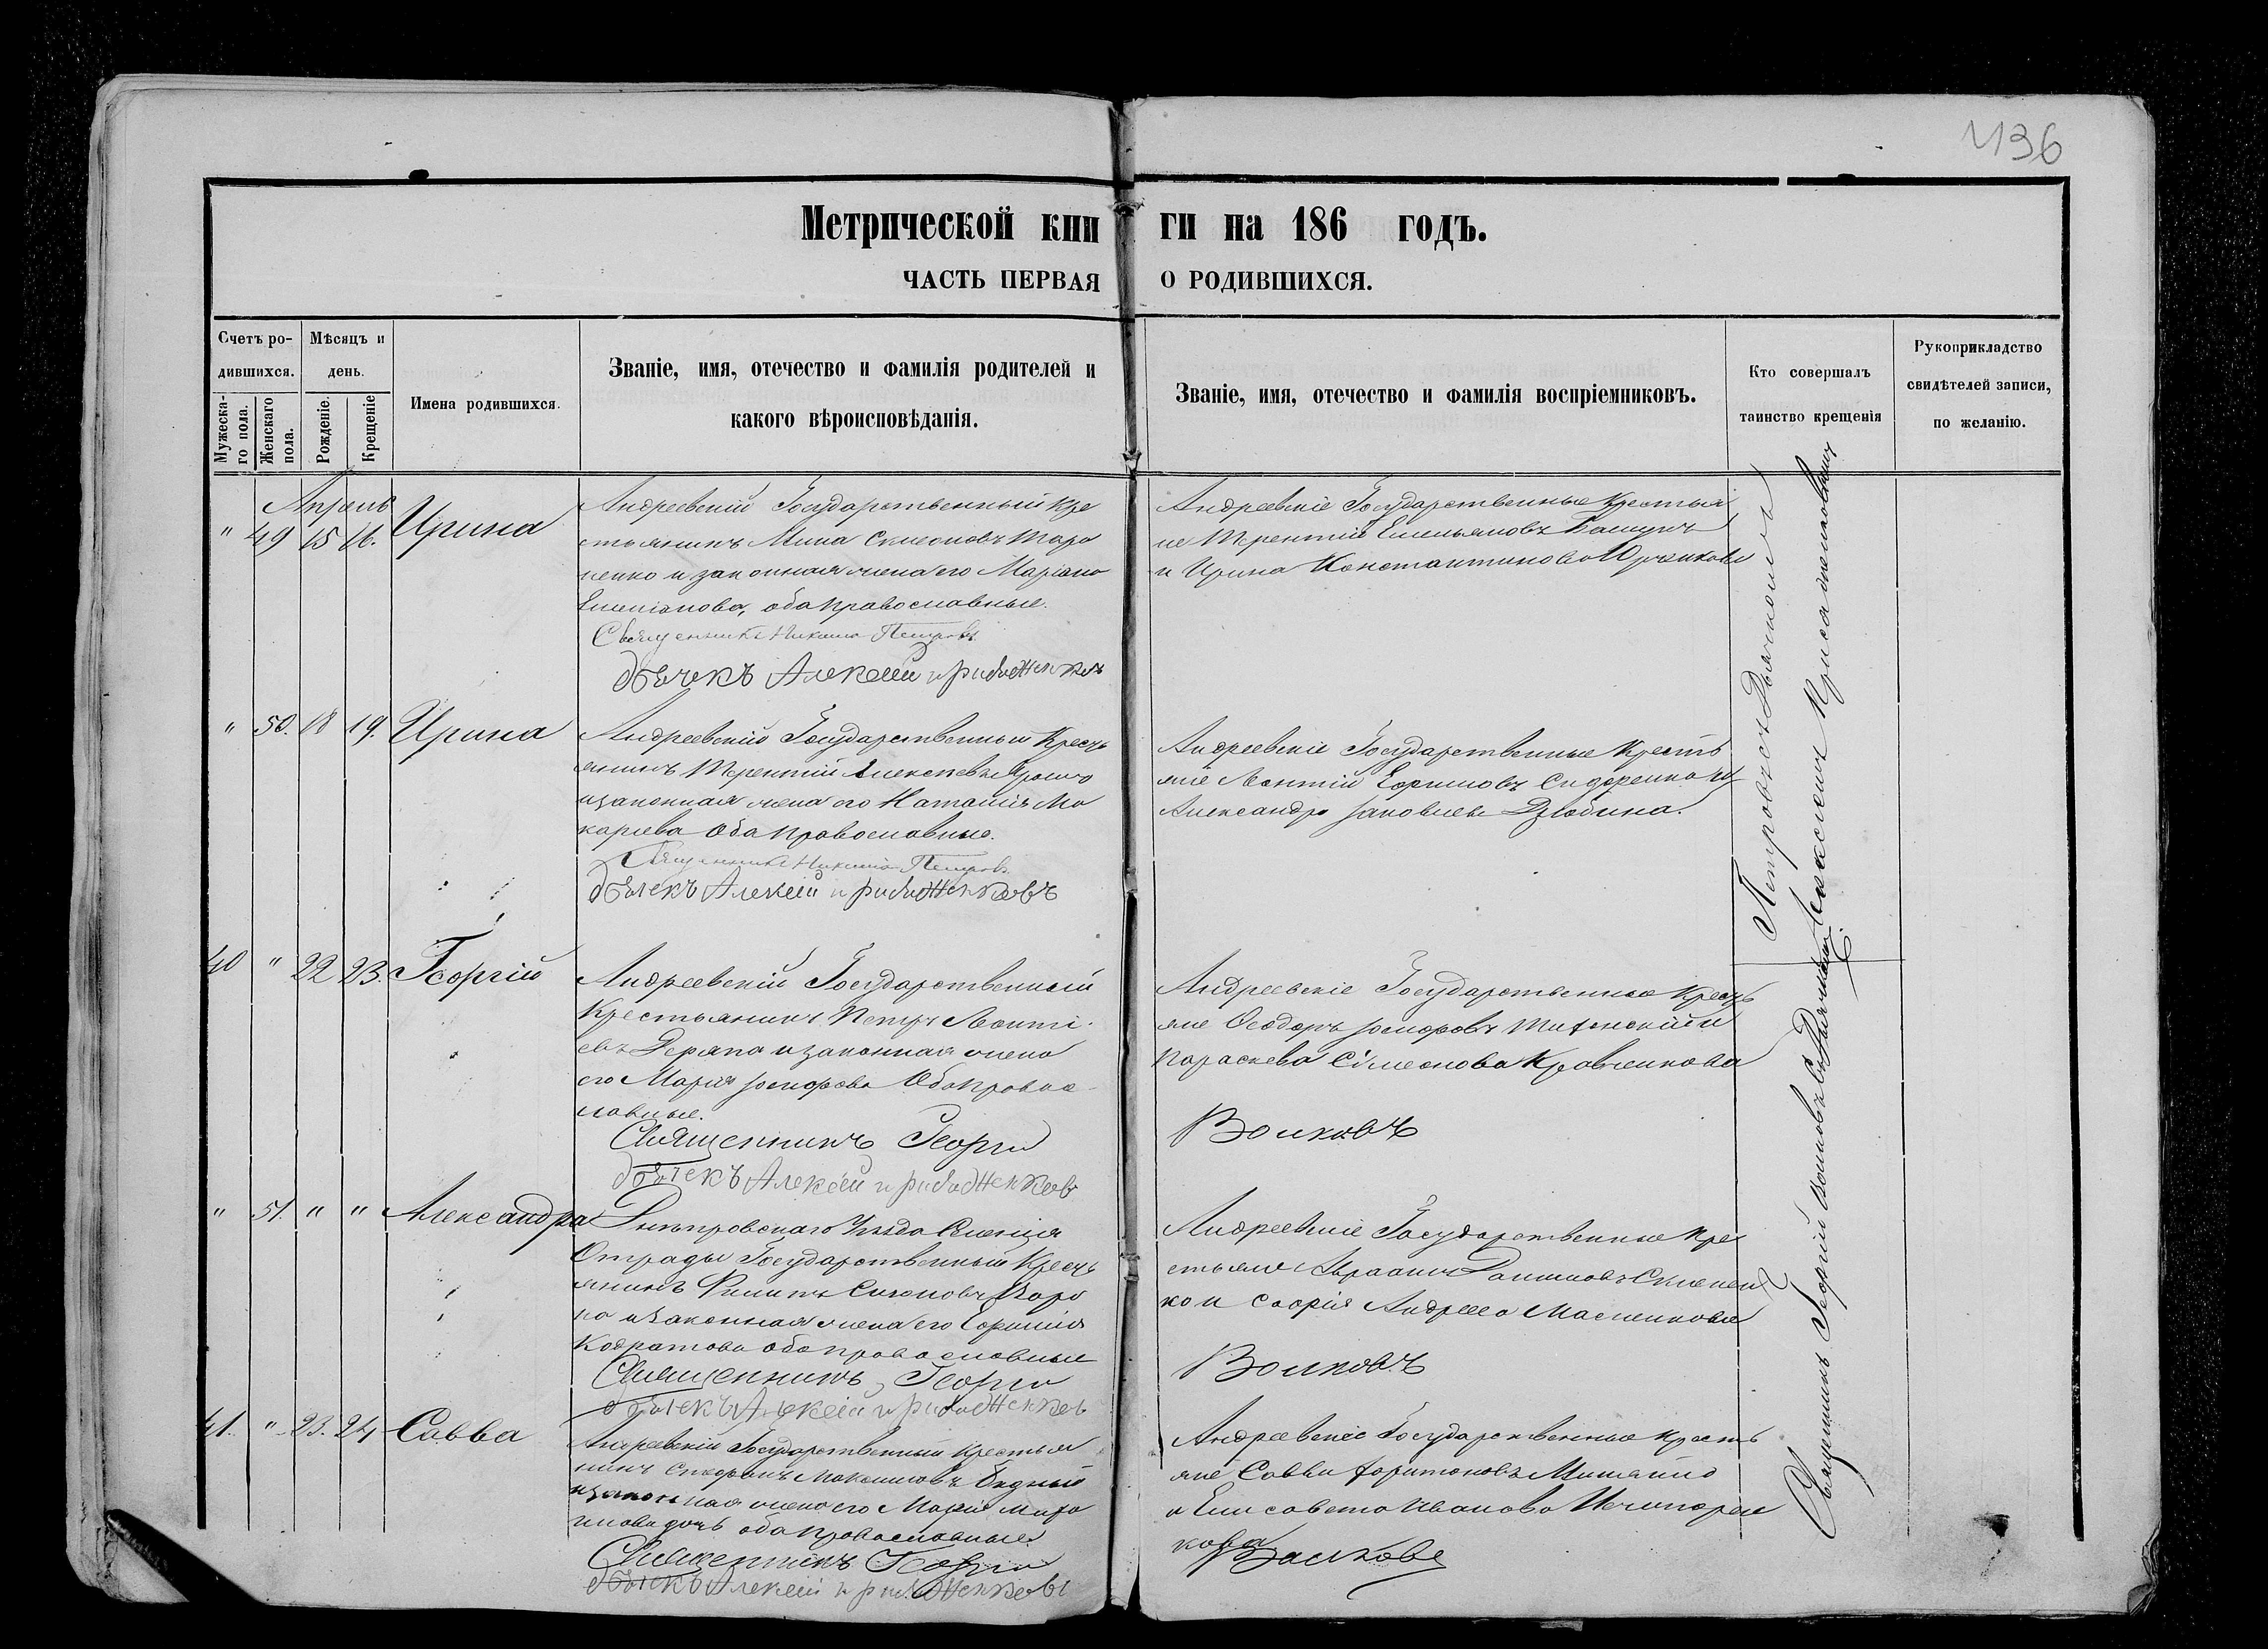 436
Метрической книги на 186 годъ.
ЧАСТЬ ПЕРВАЯ О РОДИВШИХСЯ.
Счетъ родившихся.
Мужескаго пола.
Женскаго пола.
Мѣсяцъ и день.
Рожденіе.
Крещеніе
Имена родившихся.
Званіе, имя, отечество и фамилія родителей и
какого вѣроисповѣданія.
Званіе, имя, отечество и фамилія воспріемниковъ.
Кто совершалъ
таинство крещенія
Рукоприкладство
свидѣтелей записи,
по желанію.
Апрель
" 49 15 16. Ирина
Андреевскій Государственный Кре
стьянинъ Мина Симеоновъ Тара
ненко и законная жена его Маріана
Емиліанова, оба православные.
Священникъ Никита Петровъ
дьячекъ Алексей
Андреевскіе Государственные Крестья
не Терентій Емельяновъ
и Ирина Константинова
" 50. 18 19. Ирина
Андреевскій Государственный Кресть
янинъ Терентій Алексеевъ
и законная жена его Наталія Ма
карієва оба православные.
Священникъ Никита Петровъ
дьячекъ Алексей
Андреевскіе Государственные Кресть
яне Леонтій Ефимовъ Сидоренко и
Александра Яковлева Дзюбина.
40 " 22 23. Георгій
Андреевскій Государственный
Крестьянинъ Петръ Леонті
евъ Деряпа и законная жена
его Марія Іосифова Оба правос
лавные.
Священникъ Георгій
дьячекъ Алексей
Андреевскіе Государственные Кресть
яне Феодоръ Іосифовъ и
Параскева Сімеонова Кравченкова
Волковъ
" 51. " " Александра
Днепровскаго Уезда Селенія
Отрады Государственный Кресть
янинъ Филипъ Симоновъ Воро
на и законная жена его Ефимія
Кодратова оба православные
Священникъ Георгій
дьячекъ Алексей
Андреевскіе Государственные Кре
стьяне Авраамъ
ко и Софія Андреева Масленкова
Волковъ
41. " 23. 24 Савва
Андреевскій Государственный Крестья
нинъ Стефанъ Максимовъ Бедный
и законная жена его Марія
дочь оба православные.
Священникъ Георгій
дьячекъ Алексей
Андреевскіе Государственные Кресть
яне Савва Харитоновъ
и Елисавета Иванова Нечипорен
кова
Волковъ
Петровъ съ Дьячкомъ
Алексеемъ
Священникъ Георгій Волковъ съ Дьячкомъ